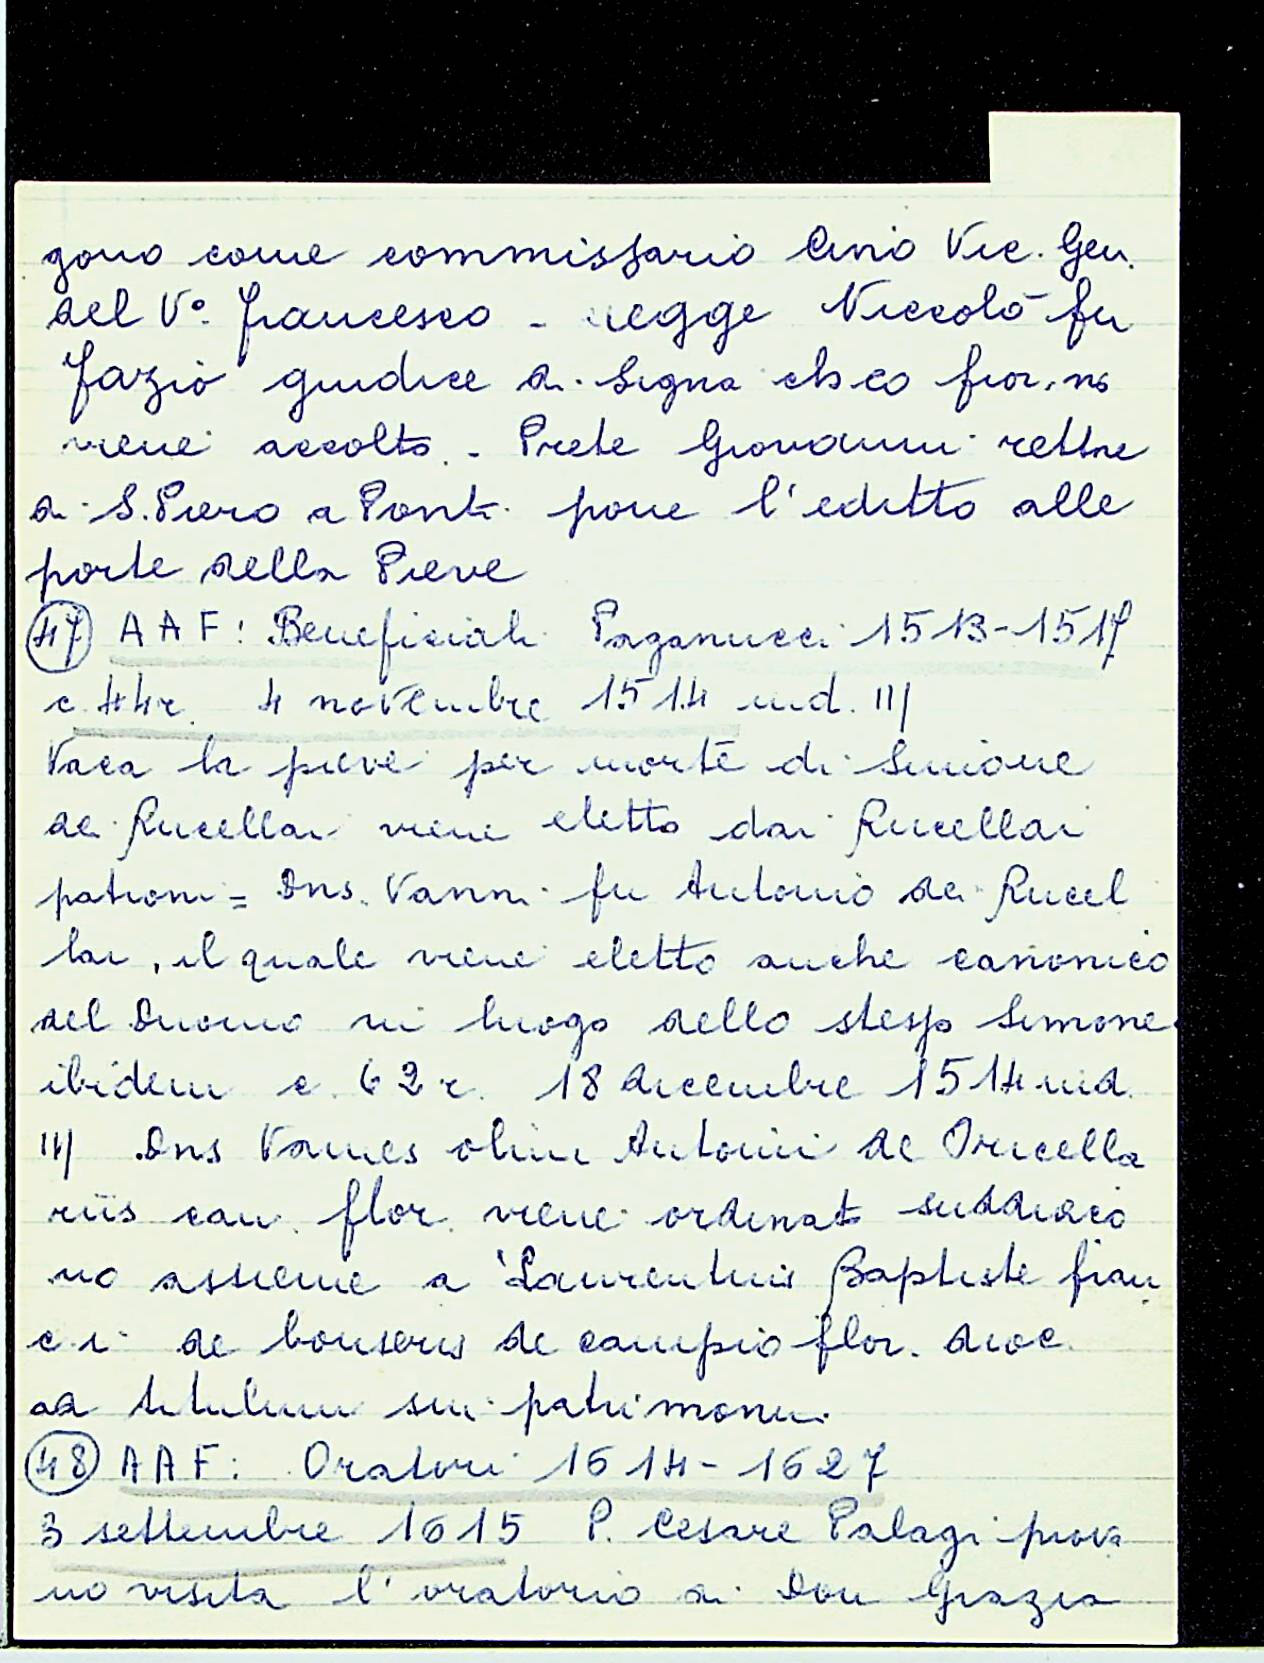 gono come commissario Cino Vic. Gen.
del V°. Francesco - legge Niccolò fu
Fazio giudice di Signa chco fior. no
viene accolto. - Prete Giovanni rettore
di S. Piero a Ponti pone l'editto alle
porte della Pieve
47 AAF: Beneficiali Paganucci 1513-1517
c. 44r. 4 novembre 1514 ind. III
Vaca la pieve per morte di Simone
dei Rucellai viene eletto dai Rucellai
patroni = Dns. Vanni fu Antonio dei Rucel
lai, il quale viene eletto anche canonico
del Duomo in luogo dello stesso Simone
ibidem c. 62r. 18 dicembre 1514 ind.
III Dns Vannes olim Antonii de Oricella
riis can. flor. viene ordinato suddiaco
no assieme a Laurentius Baptiste fran
c.i de bonseris de campio flor. dioc.
ad titulum sui patrimonii.
48 AAF: Oratori 1614-1627
3 settembre 1615 P. Cesare Palagi piova
no visita l'oratorio di Don Grazia